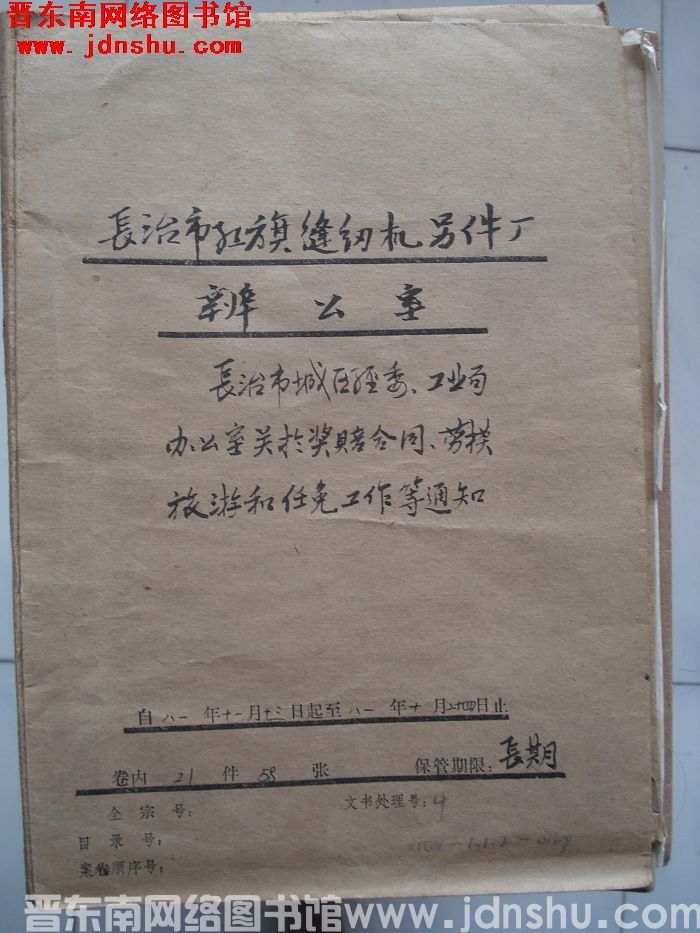 晋东南网络图书馆
www.jdnshu.com
長治市红旗缝纫机另件厂
辦公室
長治市城区経委、工业局
办公室关於奖賠合同、劳模
旅游和任免工作等通知
自八一年十一月十三日起至八一年十月廿四日止
卷内21件58张 保管期限:長期
全宗号: 文书处理号:4
目录号:
案卷顺序号:
晋东南网络图书馆 www.jdnshu.com